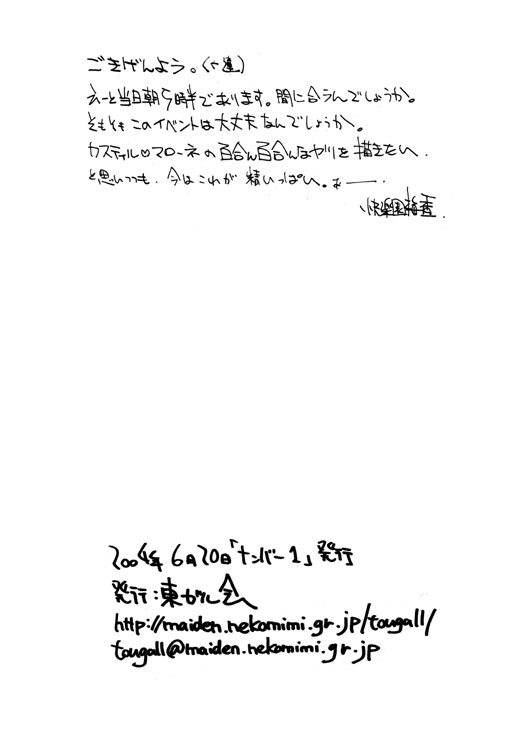 ごきげんよう。
えーと当日朝5時半であります。間に合うんでしょうか。
そもそもこのイベントは大丈夫なんでしょうか。
カスティル♡マローネの百合ん百合んなヤツを描きたい、
と思いつつも、今はこれが精いっぱい。ぁ——.
快楽園梅香.
2004年6月20日「ナンバー1」発行
発行：東ガル会
http://maiden.nekomimi.gr.jp/tougall/
tougall@maiden.nekomimi.gr.jp